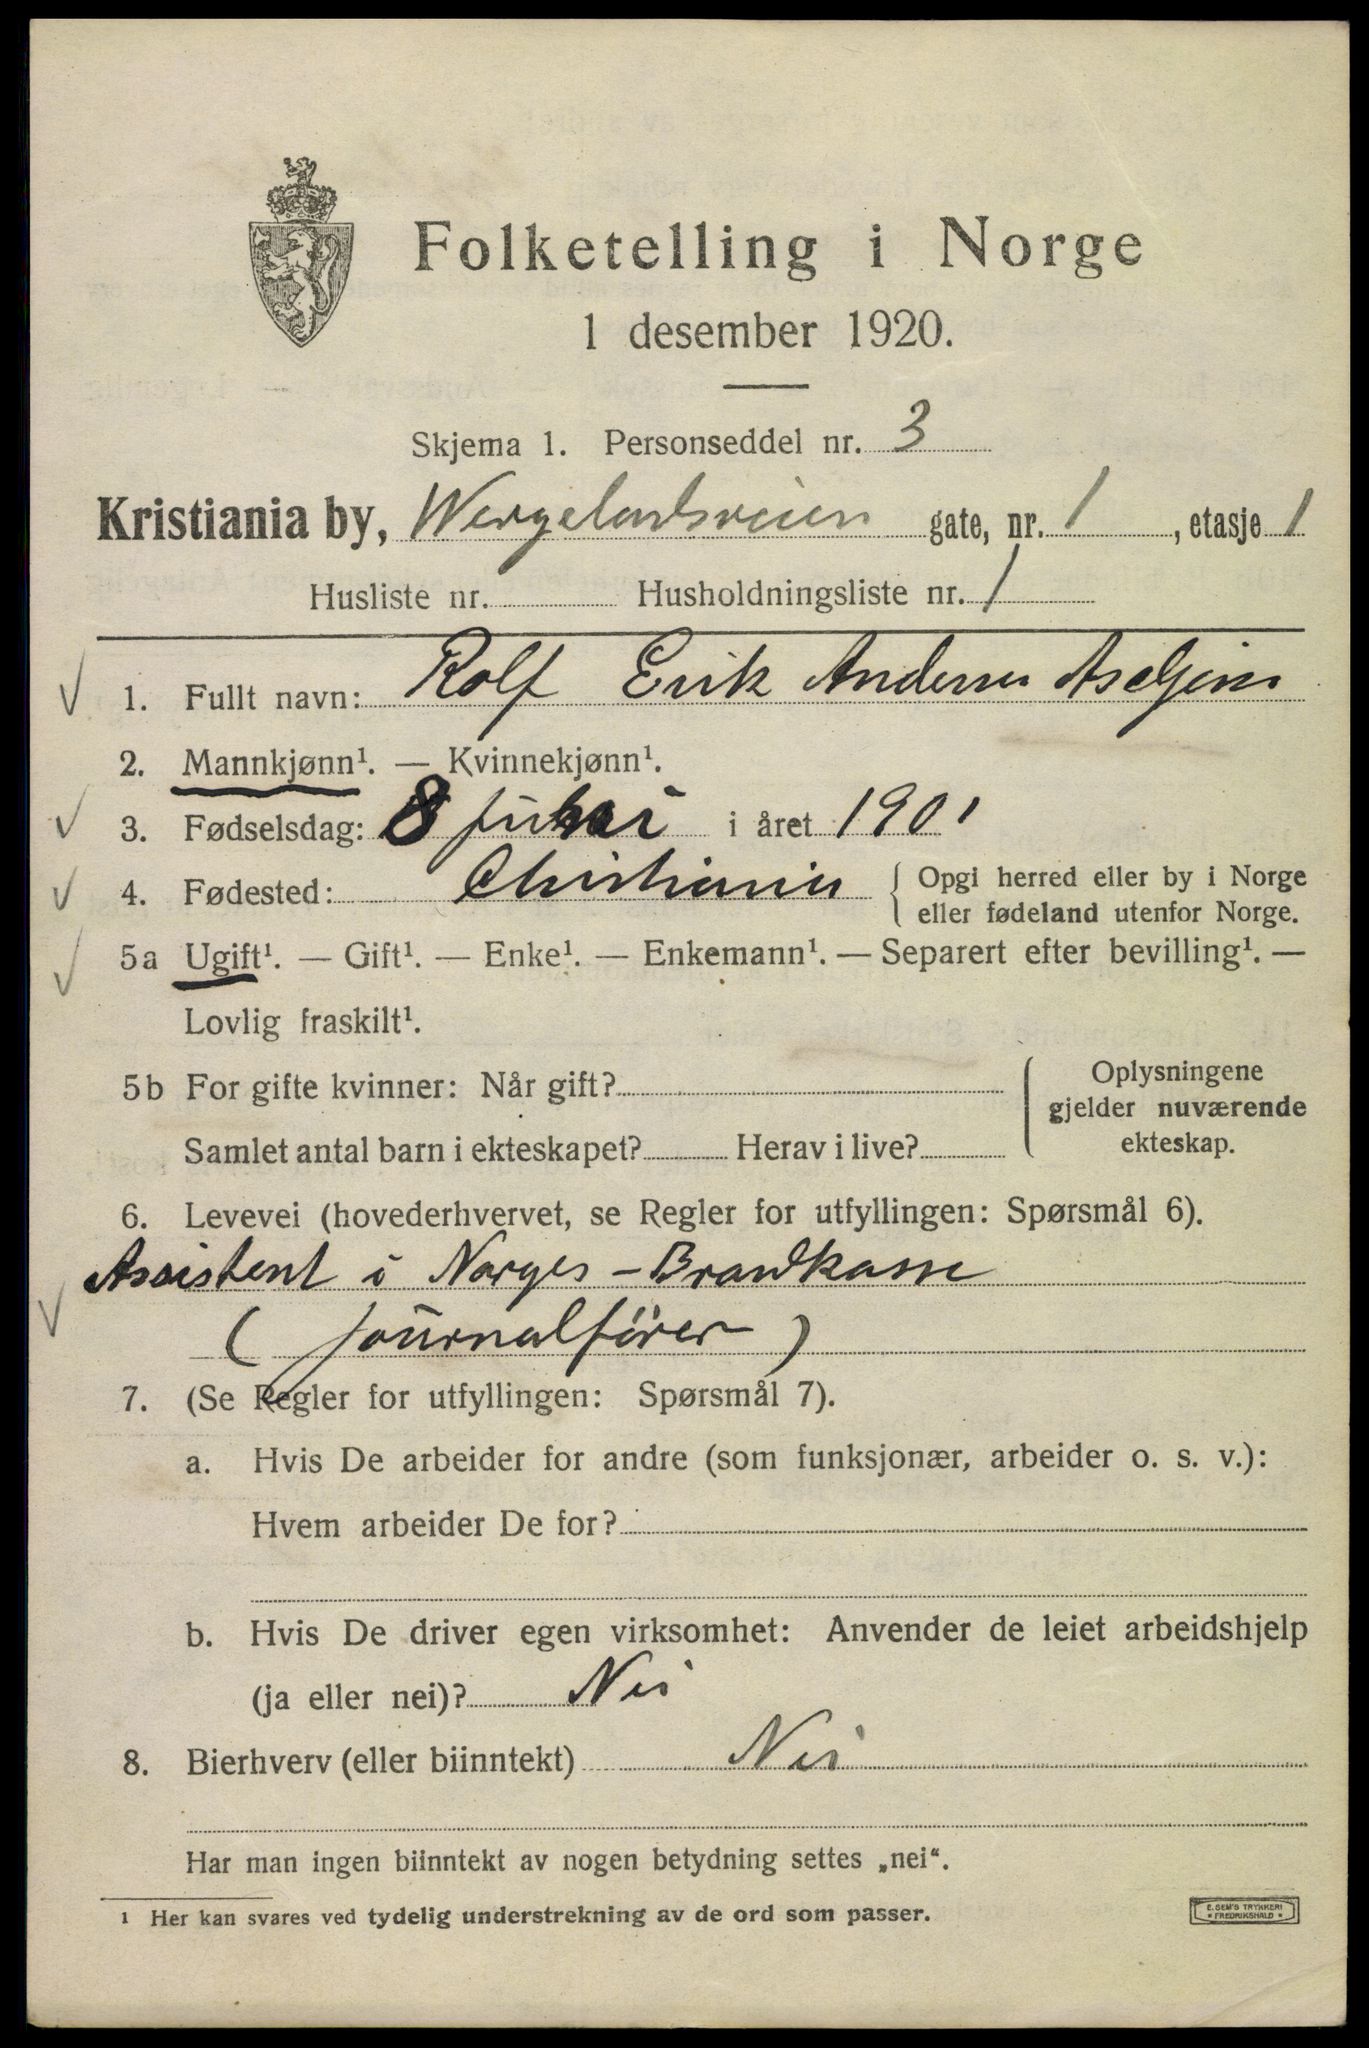 Folketelling i Norge
1 desember 1920.
Skjema 1. Personseddel nr. 3
Kristiania by, Wergelandsveien gate, nr. 1, etasje 1
Husliste nr. Husholdningsliste nr. 1
1. Fullt navn: Rolf Erik Anderson
2. Mannkjønn¹. — Kvinnekjønn¹.
3. Fødselsdag: 8 i året 1901
4. Fødested: Christiania { Opgi herred eller by i Norge
eller fødeland utenfor Norge.
5a Ugift¹. — Gift¹. — Enke¹. — Enkemann¹. — Separert efter bevilling¹. —
Lovlig fraskilt¹.
5b For gifte kvinner: Når gift?
Samlet antal barn i ekteskapet? Herav i live?
Oplysningene
gjelder nuværende
ekteskap.
6. Levevei (hovederhvervet, se Regler for utfyllingen: Spørsmål 6).
Assistent i Norges - Brandkasse
( journalfører )
7. (Se Regler for utfyllingen: Spørsmål 7).
a. Hvis De arbeider for andre (som funksjonær, arbeider o. s. v.):
Hvem arbeider De for?
b. Hvis De driver egen virksomhet: Anvender de leiet arbeidshjelp
(ja eller nei)? Nei
8. Bierhverv (eller biinntekt) Nei
Har man ingen biinntekt av nogen betydning settes „nei“.
¹ Her kan svares ved tydelig understrekning av de ord som passer.
E. SEM'S TRYKKERI
* FREDRIKSHALD *